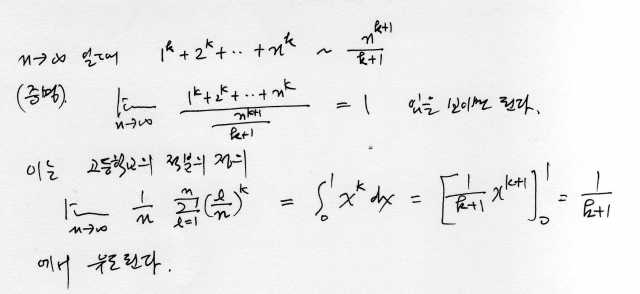 n→∞ 일때 1^k + 2^k + ‥ + n^k ~ n^{k+1}/(k+1)
(증명). lim_{n→∞} (1^k + 2^k + ‥ + n^k)/(n^{k+1}/(k+1)) = 1 임을 보이면 된다.
이는 고등학교의 적분의 정의
lim_{n→∞} 1/n ∑_{ℓ=1}^{n} (ℓ/n)^k = ∫_0^1 x^k dx = [1/(k+1) x^{k+1}]_0^1 = 1/(k+1)
에서 유도된다.